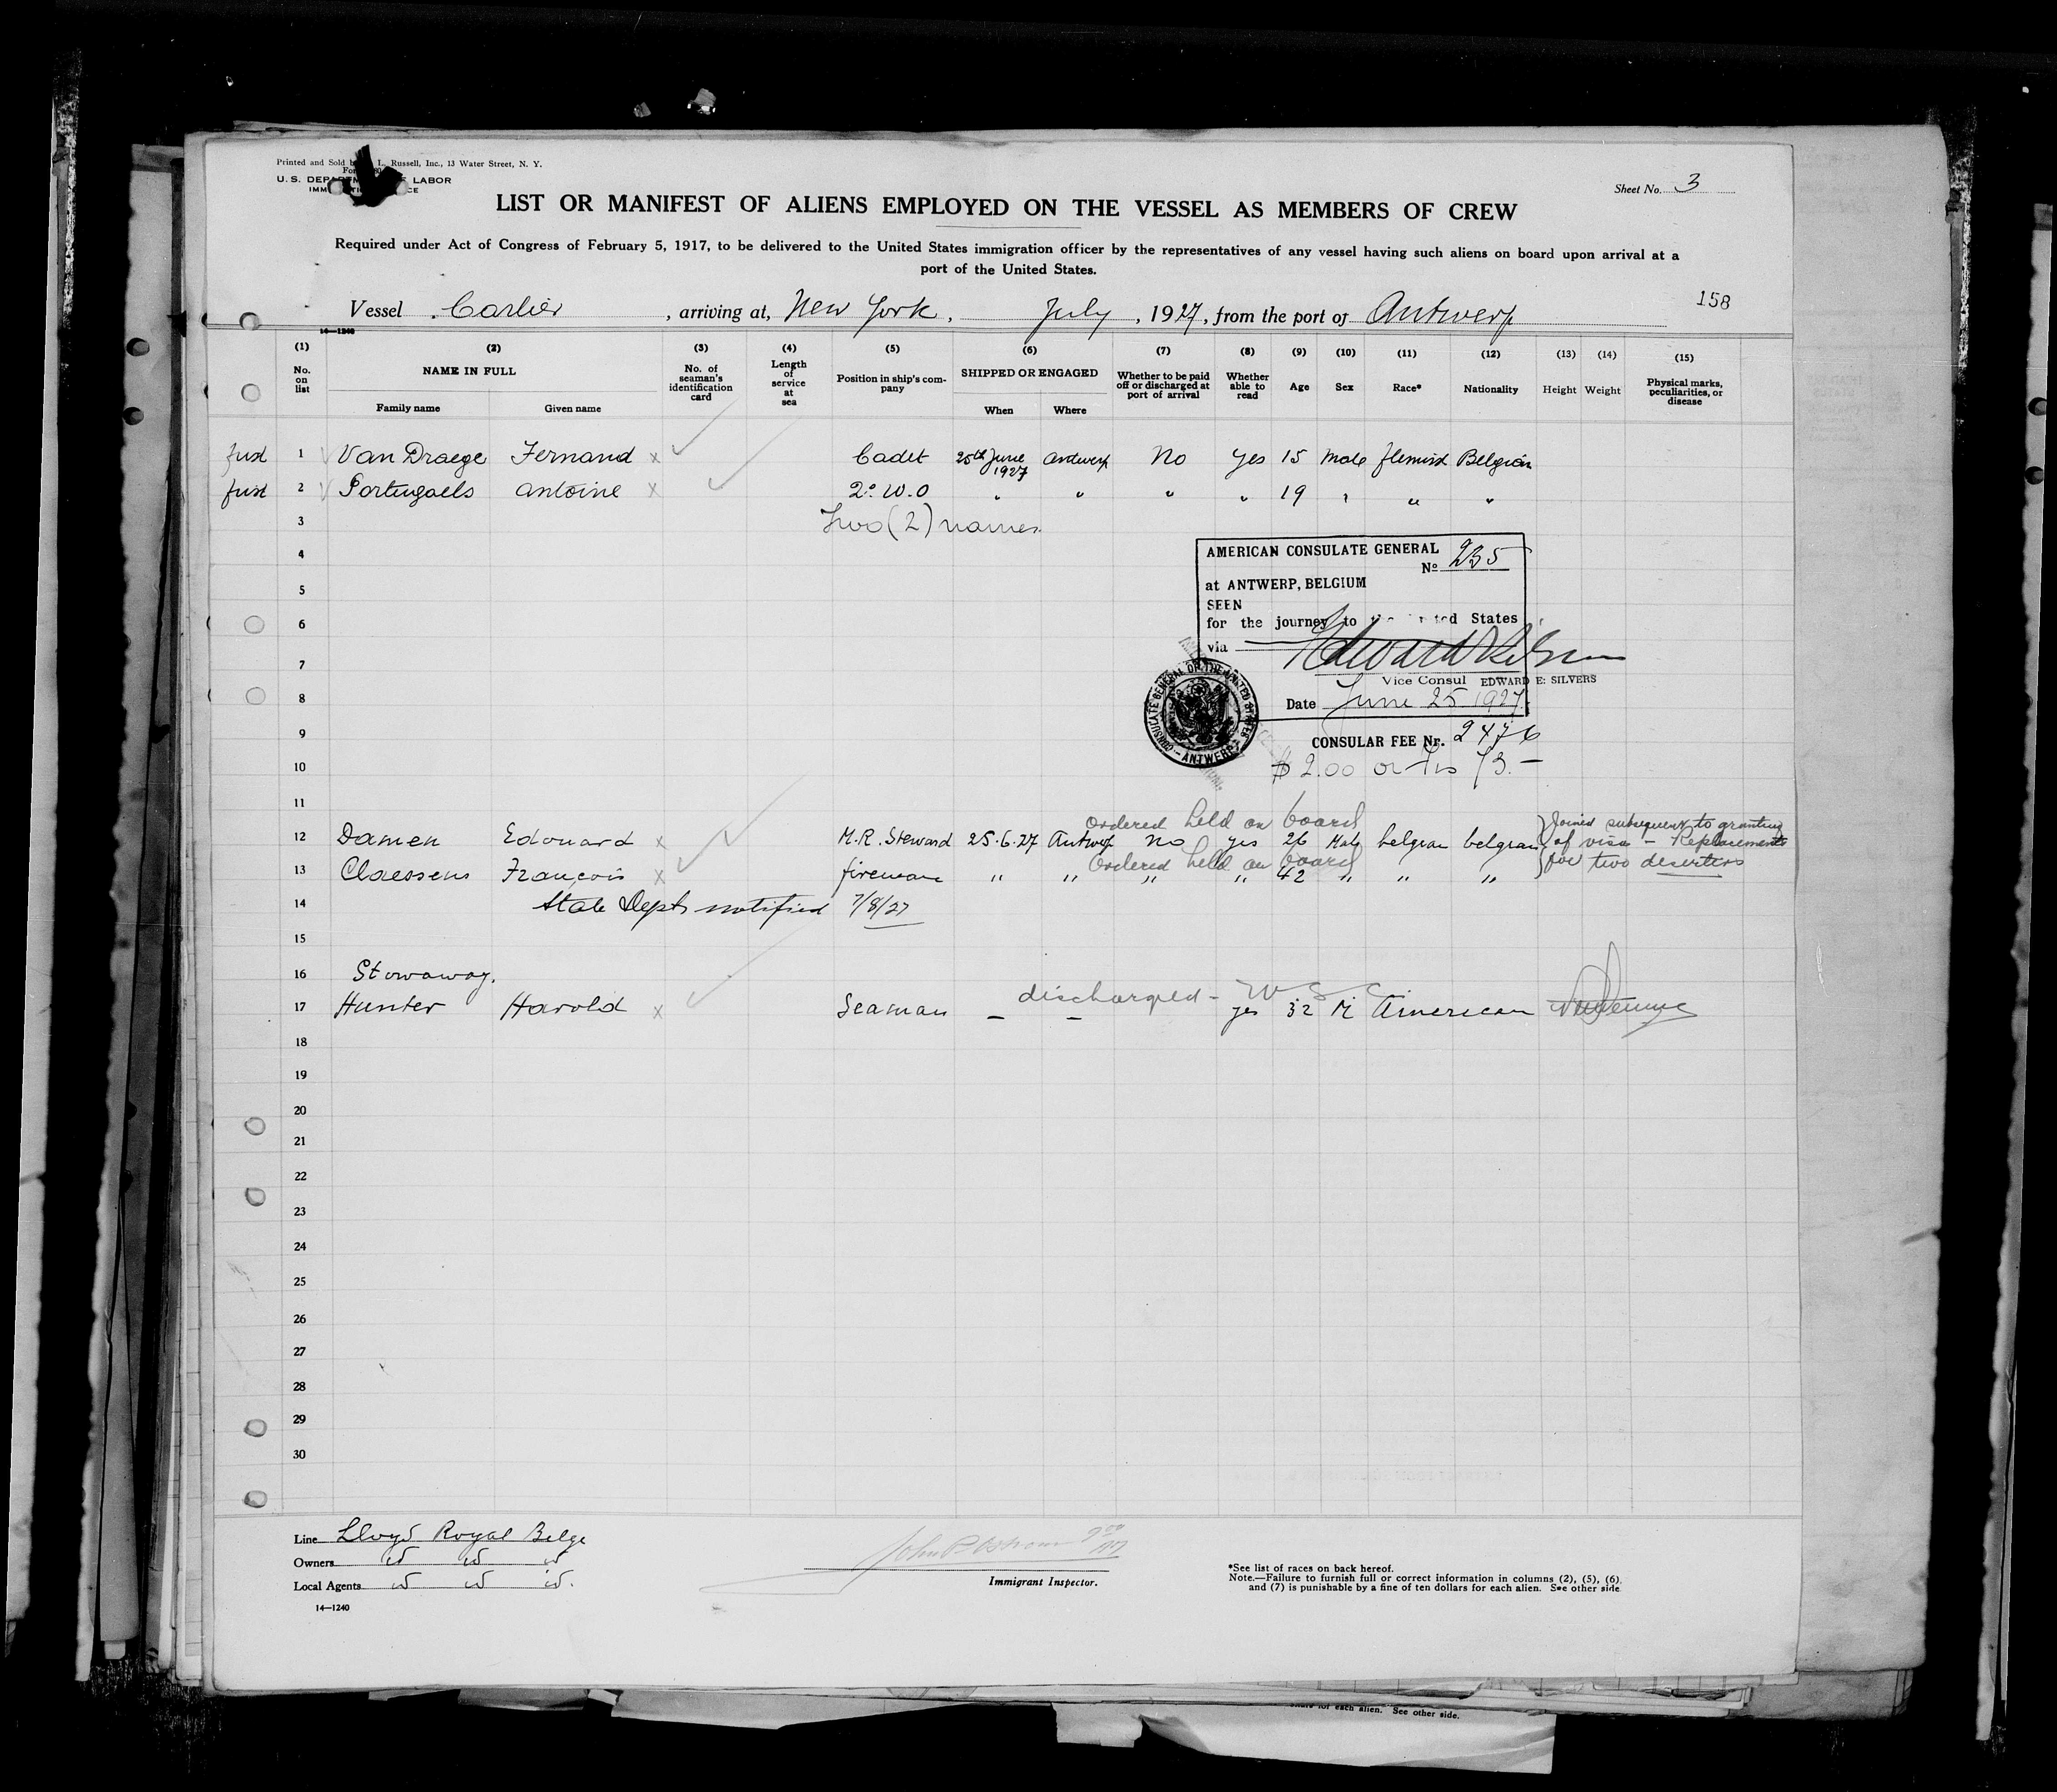 Printed and Sold b L. Russell, Inc., 13 Water Street, N. Y.
U. S. DEPARTM F LABOR
Sheet No. 3
LIST OR MANIFEST OF ALIENS EMPLOYED ON THE VESSEL AS MEMBERS OF CREW
Required under Act of Congress of February 5, 1917, to be delivered to the United States immigration officer by the representatives of any vessel having such aliens on board upon arrival at a
port of the United States.
158
Vessel Carlier, arriving at, New York, July, 1927, from the port of Antwerp
14—1240
(1) (2) (3) (4) (5) (6) (7) (8) (9) (10) (11) (12) (13) (14) (15)
No. on list NAME IN FULL Family name Given name No. of seaman's identification card Length of service at sea Position in ship's company SHIPPED OR ENGAGED When Where Whether to be paid off or discharged at port of arrival Whether able to read Age Sex Race* Nationality Height Weight Physical marks, peculiarities, or disease
first 1 Van Draege Fernand x Cadet 25th June 1927 Antwerp No Yes 15 Male flemish Belgian
first 2 Portugaels Antoine x 2e W.O " " " " 19 " " "
3 Two (2) names
4
5
6
7
8
9
10
AMERICAN CONSULATE GENERAL
No 235
at ANTWERP, BELGIUM
SEEN
for the journey to ted States
via
Vice Consul EDWARD E. SILVERS
Date June 25 1927
CONSULATE GENERAL OF THE UNITED STATES - ANTWERP
CONSULAR FEE Nr. 2476
$ 2.00 or Frs 73.—
11
Ordered held on board
12 Damen Edouard x M.R. Steward 25.6.27 Antwerp No yes 26 Male belgian belgian } Joined subsequent to granting of visa - Replacements for two deserters
Ordered held on board
13 Claessens François x fireman " " " " 42 " " "
14 State Dept notified 7/8/27
15
16 Stowaway.
discharged - WSC
17 Hunter Harold x Seaman - - yes 32 M American
18
19
20
21
22
23
24
25
26
27
28
29
30
Line Lloyd Royal Belge
Owners id id id
Local Agents id id id.
14—1240
Immigrant Inspector.
*See list of races on back hereof.
Note.—Failure to furnish full or correct information in columns (2), (5), (6),
and (7) is punishable by a fine of ten dollars for each alien. See other side
for each alien. See other side.